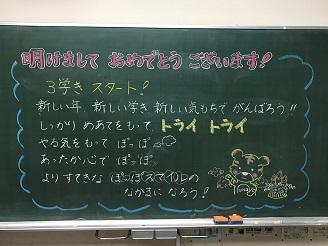 明けまして おめでとう ございます!
3学き スタート!
新しい年、新しい学き 新しい気もちで がんばろう!!
しっかり めあてをもって トライ トライ
やる気をもって ぽっぽ
あったか心で ぽっぽ
よりすてきな (ぽっぽスマイル)の
なかまに なろう!